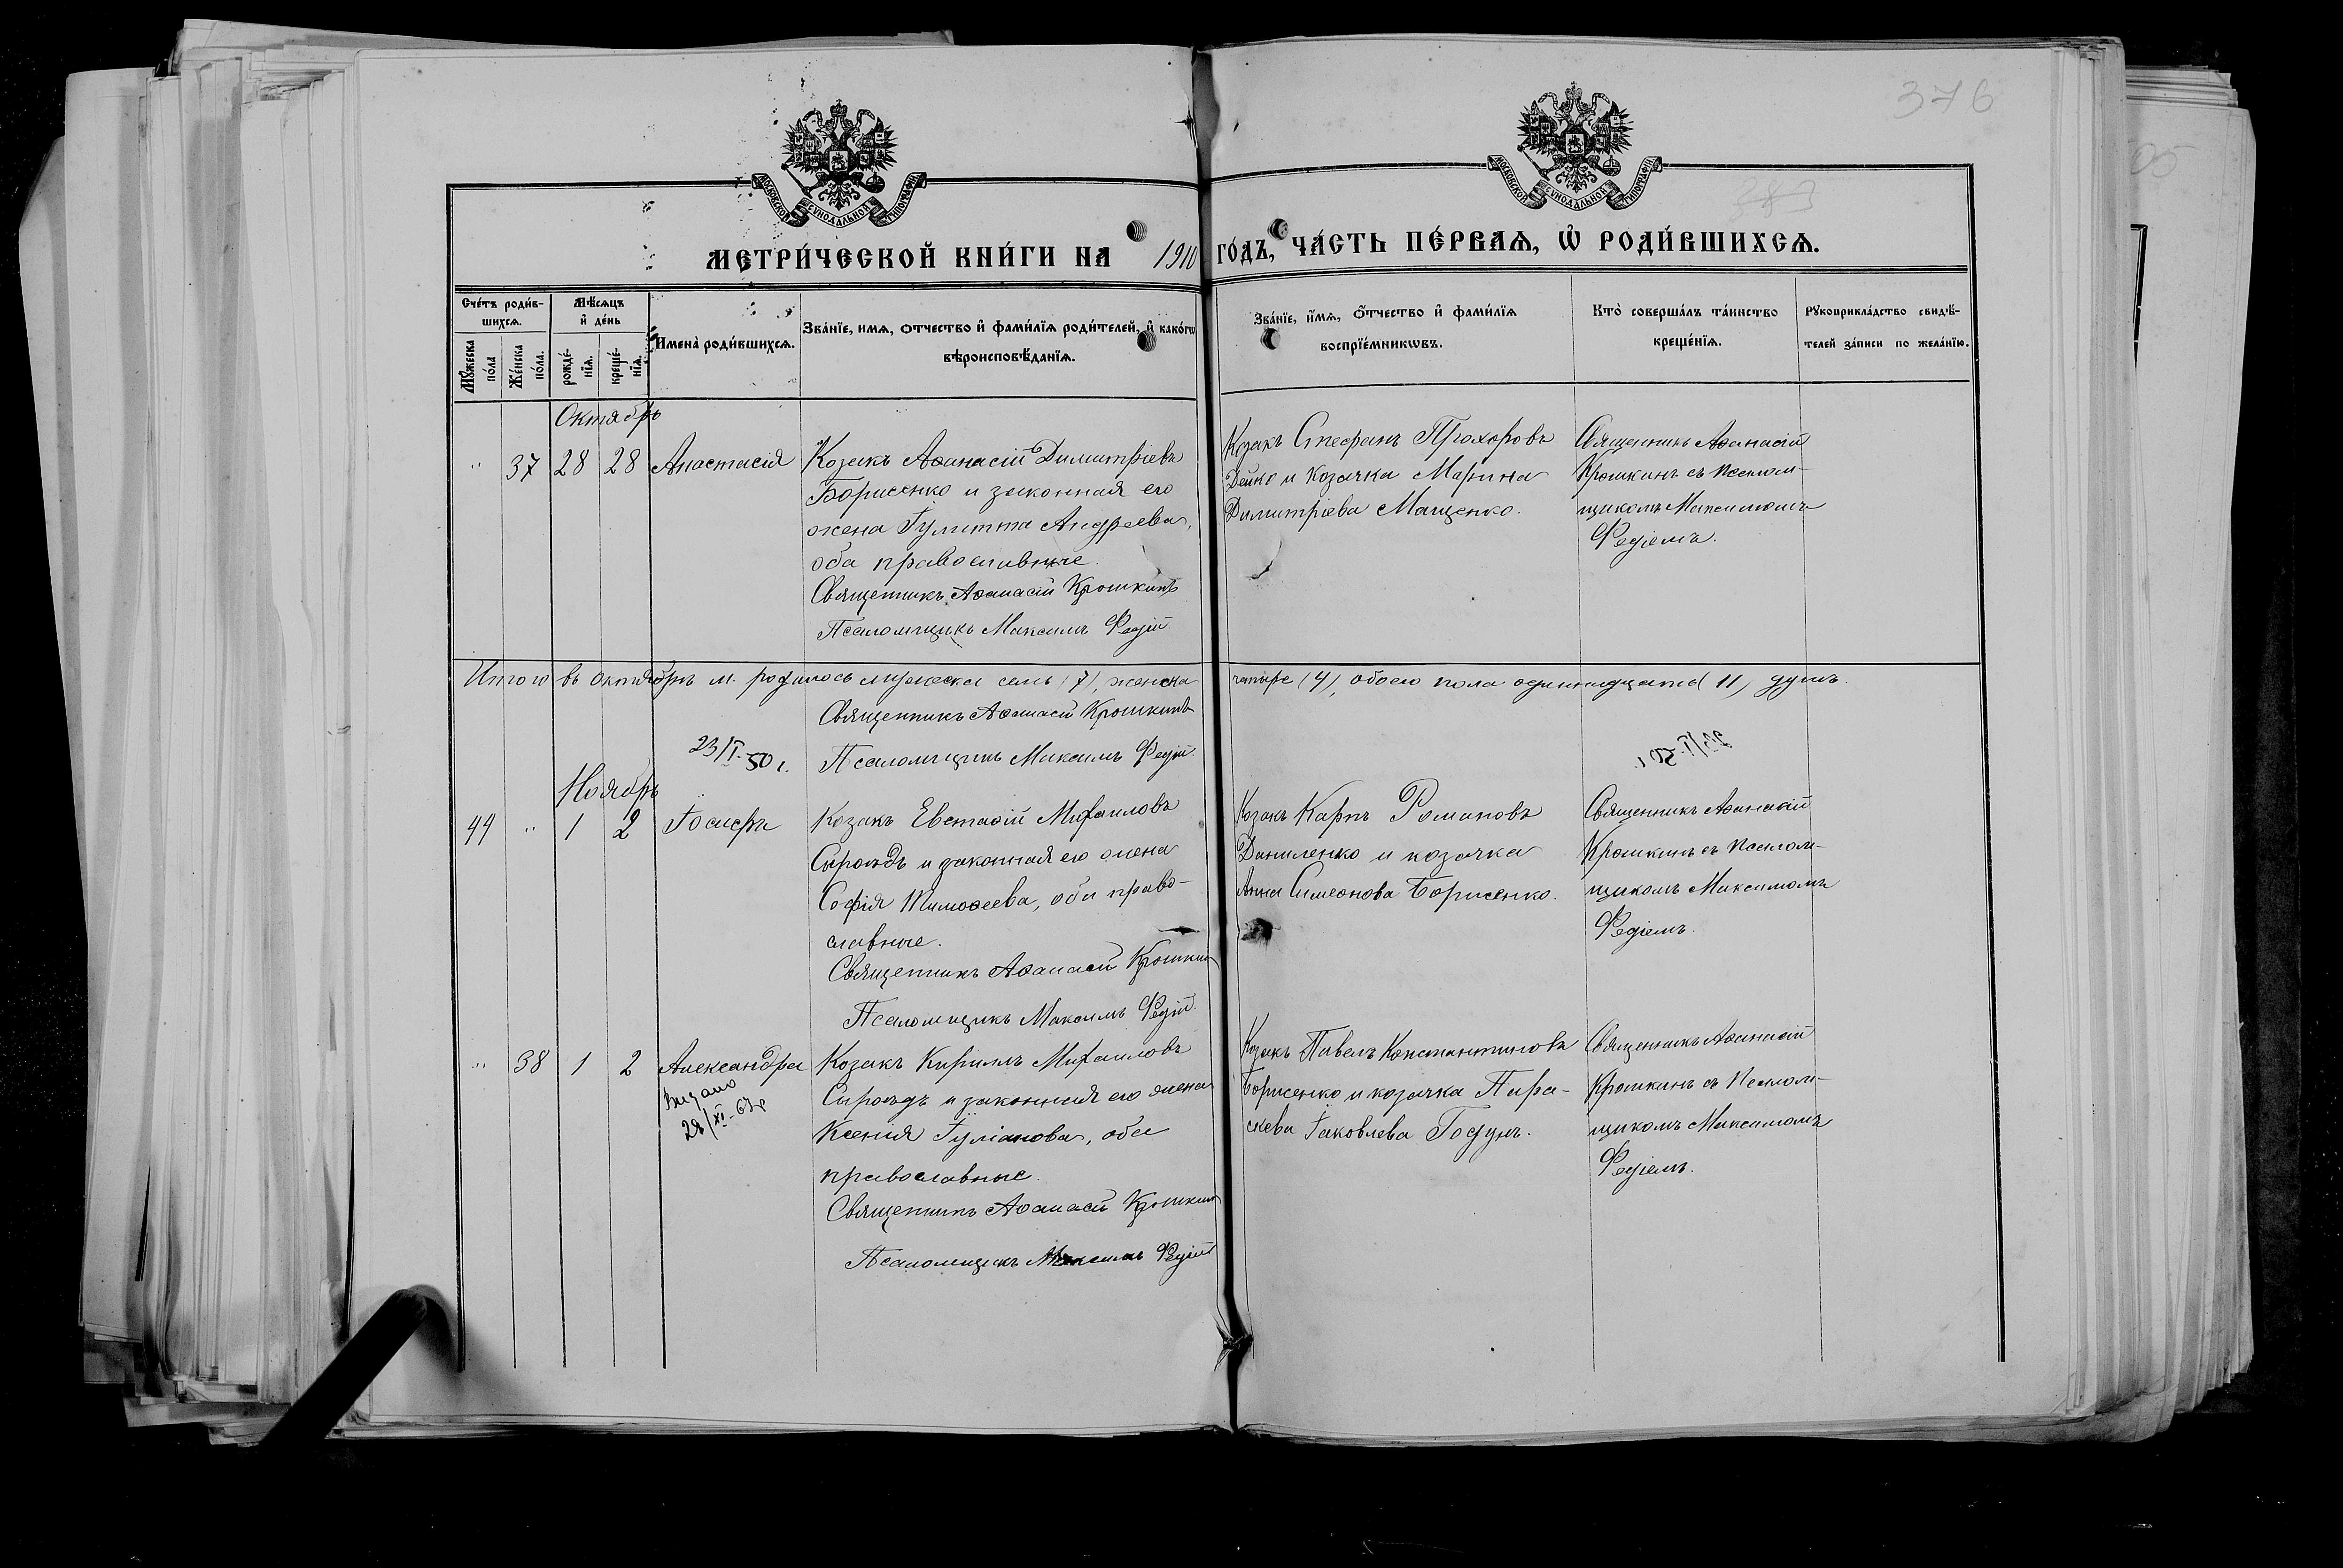 376
383
05
МОСКОВСКОЙ СѴНОДАЛЬНОЙ ТИПОГРАФІИ
МОСКОВСКОЙ СѴНОДАЛЬНОЙ ТИПОГРАФІИ
МЕТРИ́ЧЕСКОЙ КНИ́ГИ НА 1910 ГО́ДЪ, ЧА́СТЬ ПЕ́РВАѦ, Ѡ҆ РОДИ́ВШИХСѦ.
Сче́тъ роди́в-
шихсѧ.
Мꙋжеска по́ла
Же́нска по́ла.
Мѣ́сѧцъ
и҆ де́нь
рожде́-
нїѧ.
креще́-
нїѧ.
Имена̀ роди́вшихсѧ.
Зва́нїе, имѧ, ѻтчество и҆ фами́лїѧ роди́телей, и҆ како́гѡ
вѣроисповѣ́данїѧ.
Зва́нїе, и҆мѧ, ѻ҆тчество и҆ фами́лїѧ
воспрїе́мникѡвъ.
Кто̀ соверша́лъ та́инство
креще́нїѧ.
Рꙋкоприкла́дство свидѣ́-
телей за́писи по жела́нїю.
Октябрь
" 37 28 28 Анастасія
Козакъ Аѳанасій Димитріевъ
Борисенко и законная его
жена Іулитта Андреева,
оба православные.
Священникъ Аѳанасій Крошкинъ
Псаломщикъ Максимъ Федій
Козакъ Стефанъ Прохоровъ
Дейко и козачка Марина
Димитріева Мащенко.
Священникъ Аѳанасій
Крошкинъ съ псалом-
щикомъ Максимомъ
Федіемъ.
Итого въ октябрѣ м. родилось мужеска семь (7), женска четыре (4), обоего пола одиннадцать (11) душъ.
Священникъ Аѳанасій Крошкинъ
Псаломщикъ Максимъ Федій.
23/I-50 г.
23/I-50 г.
Ноябрь
44 " 1 2 Іосифъ
Козакъ Евстаѳій Михаиловъ
Сыроѣдъ и законная его жена
Софія Тимоѳеева, оба право-
славные.
Священникъ Аѳанасій Крошкинъ
Псаломщикъ Максимъ Федій.
Козакъ Карпъ Романовъ
Даниленко и козачка
Анна Симеонова Борисенко.
Священникъ Аѳанасій
Крошкинъ съ псалом-
щикомъ Максимомъ
Федіемъ.
" 38 1 2 Александра
Видано
28/XI-67р
Козакъ Кириллъ Михаиловъ
Сыроѣдъ и законная его жена
Ксенія Іуліанова, оба
православные.
Священникъ Аѳанасій Крошкинъ
Псаломщикъ Максимъ Федій
Козакъ Павелъ Константиновъ
Борисенко и козачка Пара-
скева Іаковлева Годунъ.
Священникъ Аѳанасій
Крошкинъ съ псалом-
щикомъ Максимомъ
Федіемъ.